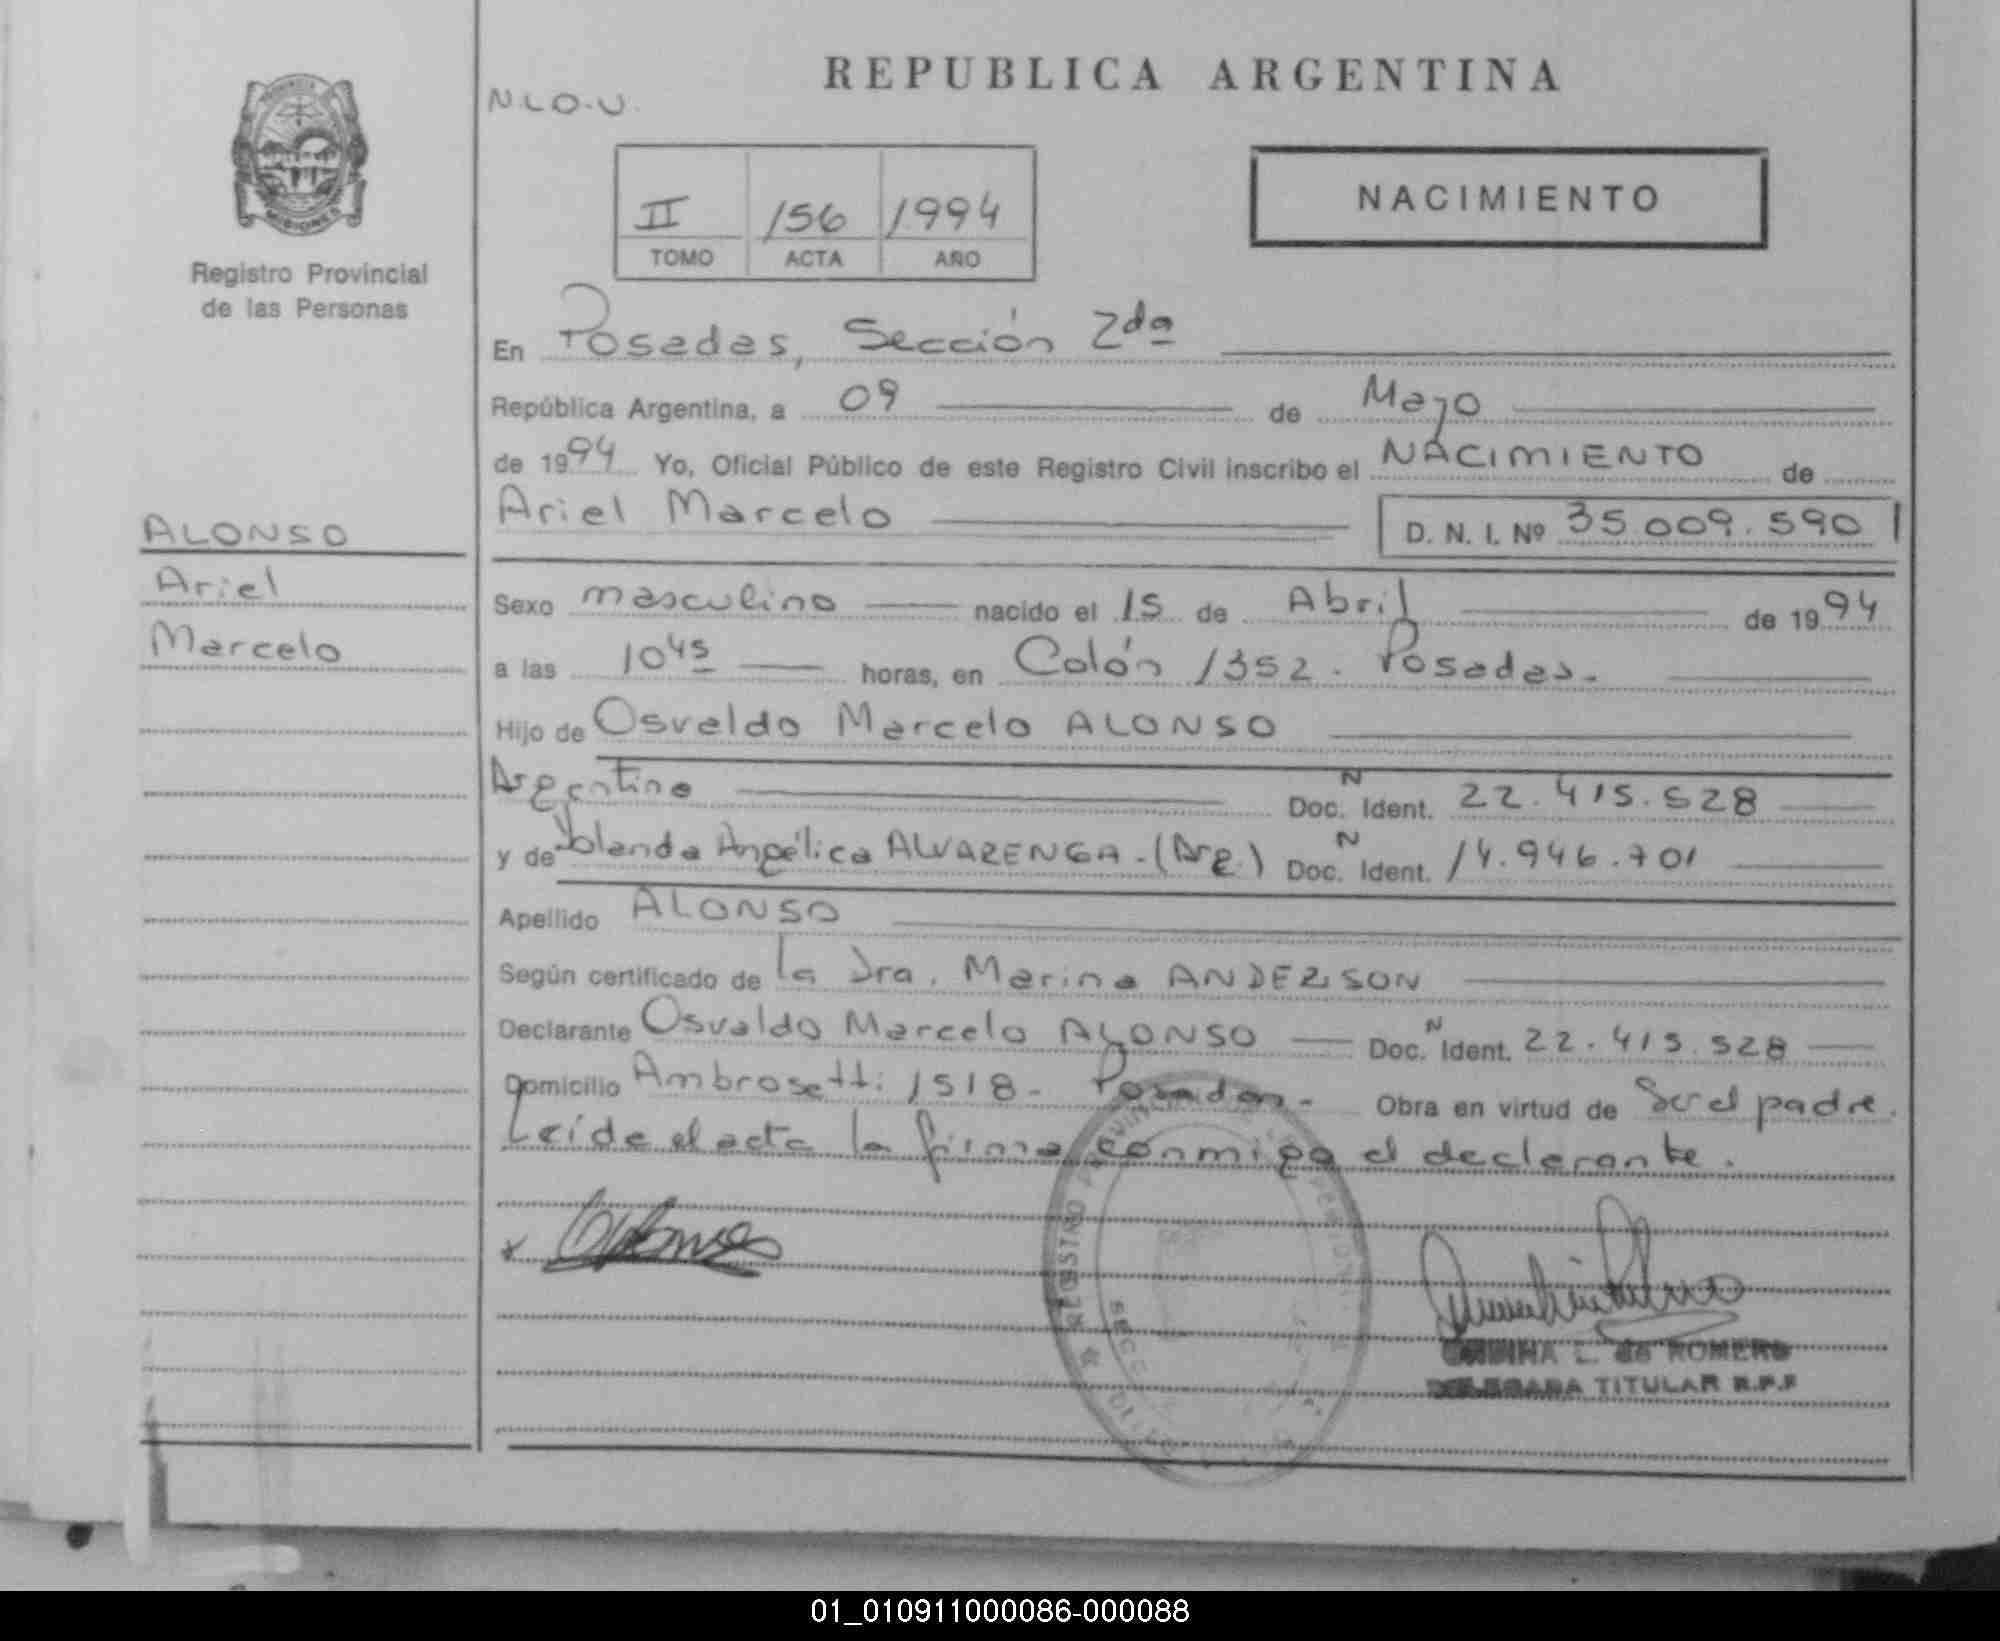 REPUBLICA ARGENTINA
N.L.O.U.
PROVINCIA
MISIONES
Registro Provincial
de las Personas
II 156 1994
TOMO ACTA AÑO
NACIMIENTO
En Posadas, Sección 2da
República Argentina, a 09 de Mayo
de 1994 Yo, Oficial Público de este Registro Civil inscribo el NACIMIENTO de
Ariel Marcelo D. N. I. Nº 35.009.590
ALONSO
Ariel
Marcelo
Sexo masculino nacido el 15 de Abril de 1994
a las 10 45 horas, en Colón 1352. Posadas.
Hijo de Osvaldo Marcelo ALONSO
Argentino Doc. N Ident. 22.415.528
y de Yolanda Angélica ALVARENGA.(Arg.) Doc. N Ident. 14.946.701
Apellido ALONSO
Según certificado de la Dra. Marina ANDERSON
Declarante Osvaldo Marcelo ALONSO Doc. N Ident. 22.415.528
Domicilio Ambrosetti 1518- Posadas. Obra en virtud de Ser el padre.
Leída el acta la firma conmigo el declarante.
REGISTRO
SECC
L. de ROMERO
DELEGADA TITULAR R.P.P
01_010911000086-000088